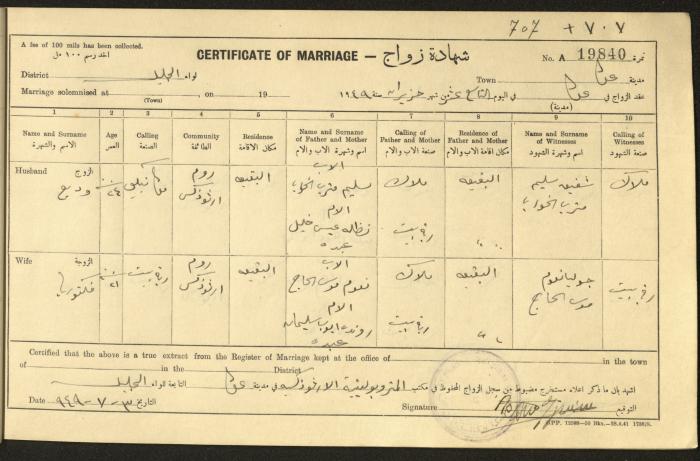 707 + ٧٠٧
A fee of 100 mils has been collected.
اخذ رسم ١٠٠ مل
CERTIFICATE OF MARRIAGE – شهادة زواج
No. A 19840 نمرة
District لواء الجليل
Town مدينة عكا
Marriage solemnised at , on 19
(Town)
عقد الزواج في عكا في اليوم التاسع عشر من شهر حزيران سنة ١٩٤٩
(مدينة)
1 2 3 4 5 6 7 8 9 10
Name and Surname Age Calling Community Residence Name and Surname of Father and Mother Calling of Father and Mother Residence of Father and Mother Name and Surname of Witnesses Calling of Witnesses
الاسم والشهرة العمر الصنعة الطائفة مكان الاقامة اسم وشهرة الاب والام صنعة الاب والام مكان اقامة الاب والام اسم وشهرة الشهود صنعة الشهود
Husband الزوج
وديع ٢٤ روم ارثوذكس البقيعه
الاب
سليم متري
ملاك البقيعه شفيق سليم متري ملاك
الام
عيسى خليل
ربة بيت
Wife الزوجة
فكتوريا ٢١ ربة بيت روم ارثوذكس البقيعه
الاب
نعوم موسى الحاج
ملاك البقيعه
نعوم موسى الحاج ربة بيت
الام
ايوب سليمان
ربة بيت
Certified that the above is a true extract from the Register of Marriage kept at the office of in the town
of in the District
اشهد بان ما ذكر اعلاه مستخرج مضبوط من سجل الزواج المحفوظ في مكتب المتروبوليتية الارثوذكسية في مدينة عكا التابعة للواء الجليل
Date التاريخ ٣-٧-٩٤٩
Signature التوقيع
GPP. 12098–50 Bks.–28.4.41 1798/S.